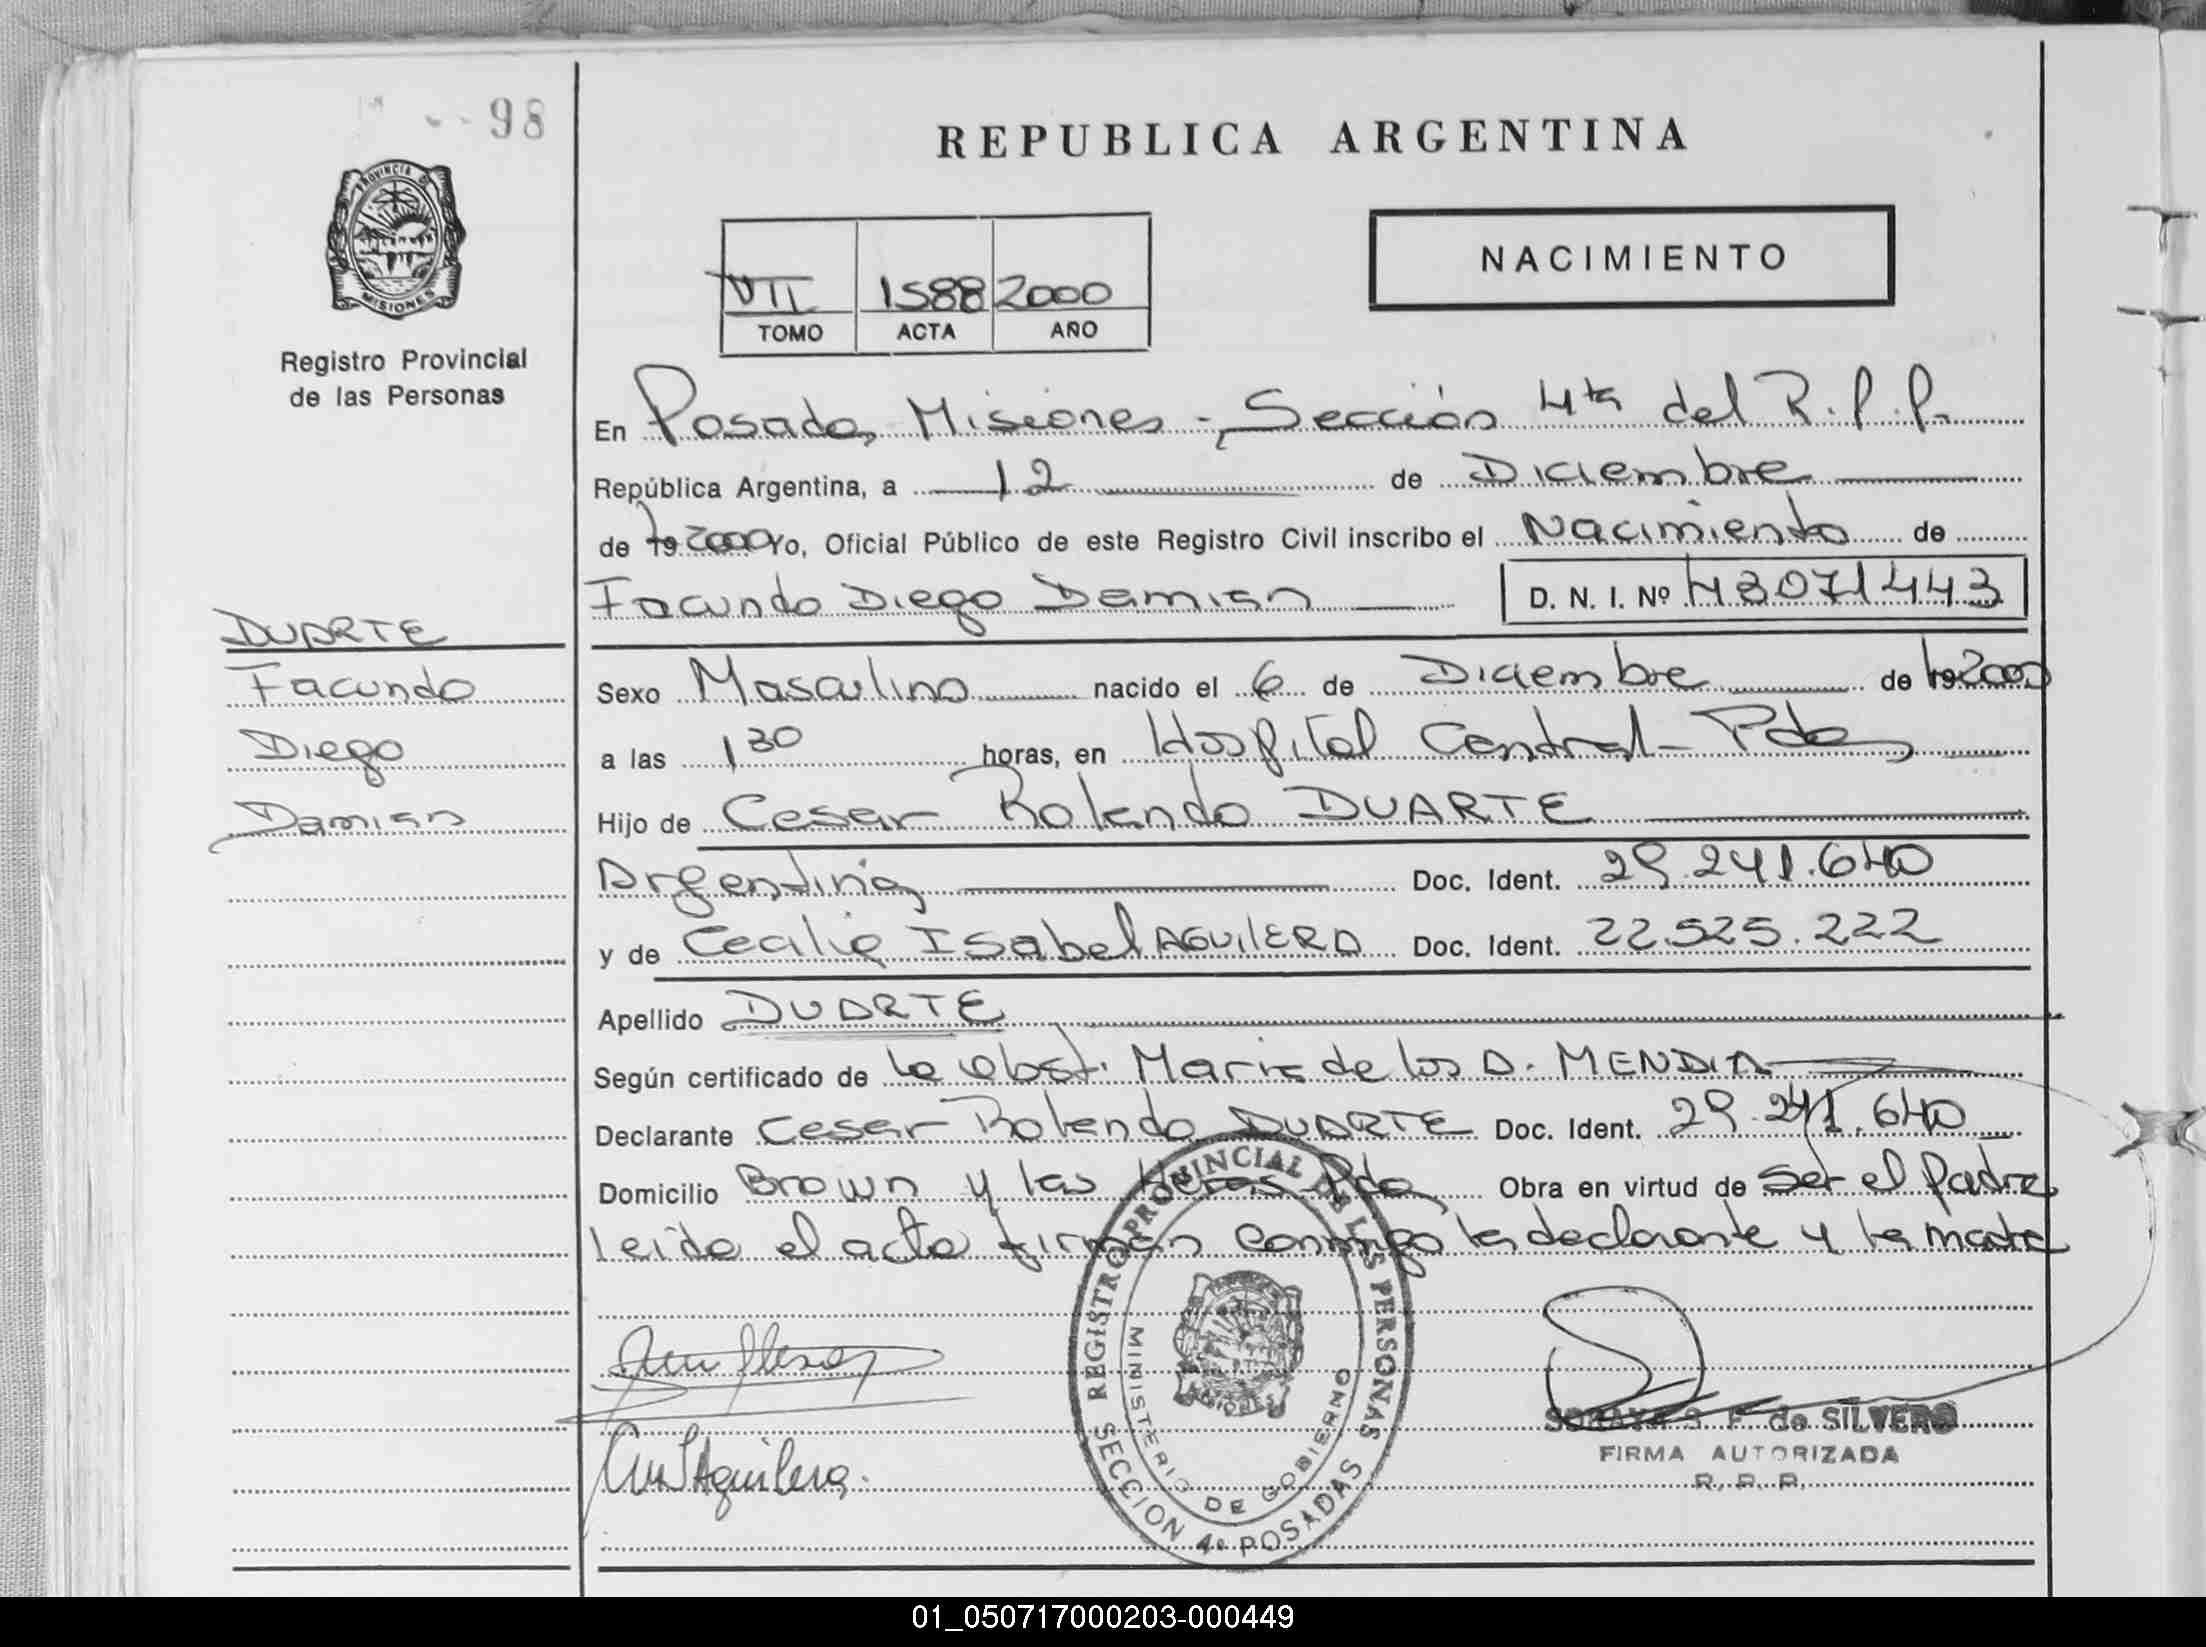 98
REPUBLICA ARGENTINA
PROVINCIA DE
MISIONES
NACIMIENTO
VII 1588 2000
TOMO ACTA AÑO
Registro Provincial
de las Personas
En Posadas, Misiones -, Sección 4ta del R.P.P.
República Argentina, a 12 de Diciembre
de 19 2000 Yo, Oficial Público de este Registro Civil inscribo el Nacimiento de
Facundo Diego Damian D. N. I. Nº 43071443
DUARTE
Facundo
Diego
Damian
Sexo Masculino nacido el 6 de Diciembre de 19 2000
a las 1 30 horas, en Hospital Central - Pdas
Hijo de Cesar Rolando DUARTE
Argentina Doc. Ident. 29.241.640
y de Cecilia Isabel AGUILERA Doc. Ident. 22.525.222
Apellido DUARTE
Según certificado de la obst. Maria de los A. MENDIA
Declarante Cesar Rolando DUARTE Doc. Ident. 29.241.640
Domicilio Brown y las Heras Pdas Obra en virtud de ser el padre
leida el acta firman conmigo la declarante y la madre
REGISTRO PROVINCIAL DE LAS PERSONAS
MINISTERIO DE GOBIERNO
MISIONES
SECCION 4º POSADAS
Aguilera.
SORAYA S. F. de SILVERO
FIRMA AUTORIZADA
R. P. P.
01_050717000203-000449